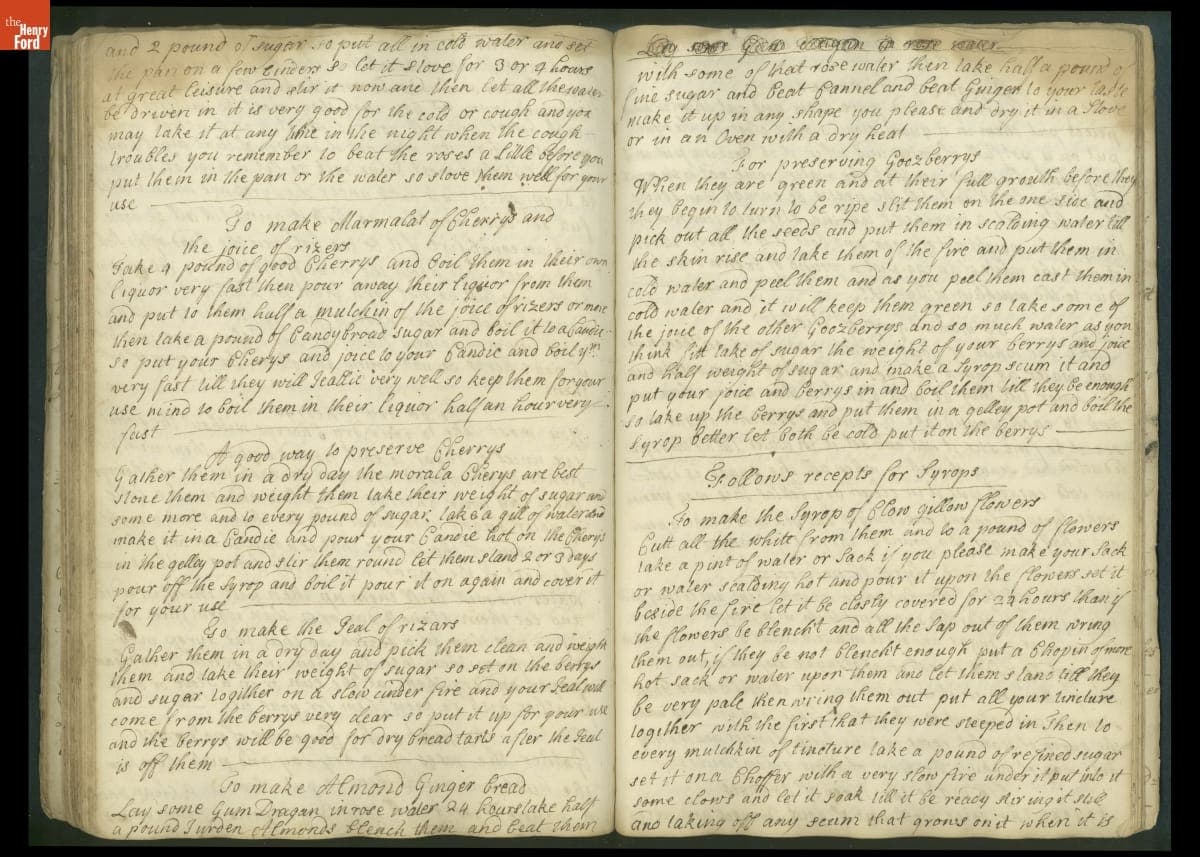 the
Henry
Ford
and 2 pound of sugar so put all in cold water and set
the pan on a few Cinders so let it stove for 3 or 4 hours
at great leisure and stir it now and then let all the water
be driven in it is very good for the cold or cough and you
may take it at any time in the night when the cough
troubles you remember to beat the roses a little before you
put them in the pan or the water so stove them well for your
use
To make Marmalat of Cherrys and
the joice of rizers
Take 4 pound of good Cherrys and boil them in their own
liquor very fast then pour away their liquor from them
and put to them half a mutchkin of the joice of rizers or more
then take a pound of Candybroad sugar and boil it to a Candie
so put your Cherys and joice to your Candie and boil ym
very fast till they will Jeallie very well so keep them for your
use mind to boil them in their liquor half an hour very
fast
A good way to preserve Cherrys
Gather them in a dry day the morala Cherys are best
stone them and weight them take their weight of sugar and
some more and to every pound of sugar take a gill of water and
make it in a Candie and pour your Candie hot on the Cherys
in the gelley pot and stir them round let them stand 2 or 3 days
pour off the syrop and boil it pour it on again and cover it
for your use
To make the Jeal of rizars
Gather them in a dry day and pick them clean and weight
them and take their weight of sugar so set on the berrys
and sugar togither on a slow cinder fire and your Jeal will
come from the berrys very clear so put it up for your use
and the berrys will be good for dry bread tarts after the Jeal
is off them
To make Almond Ginger bread
Lay some Gum Dragan in rose water 24 hours take half
a pound Jurden Almonds blench them and beat them
Lay some Gum dragan in rose water
with some of that rose water then take half a pound of
fine sugar and beat Cannel and beat Ginger to your taste
make it up in any shape you please and dry it in a Stove
or in an Oven with a dry heat
For preserving Goozberrys
When they are green and at their full grouth before they
they begin to turn to be ripe slit them on the one side and
pick out all the seeds and put them in scalding water till
the skin rise and take them of the fire and put them in
cold water and peel them and as you peel them cast them in
cold water and it will keep them green so take some of
the joice of the other Goozberrys and so much water as you
think fitt take of sugar the weight of your berrys and joice
and half weight of sugar and make a Syrop scum it and
put your joice and berrys in and boil them till they be enough
so take up the berrys and put them in a gelley pot and boil the
syrop better let both be cold put it on the berrys
Follows recepts for Syrops
To make the Syrop of Clow gillow flowers
Cutt all the white from them and to a pound of flowers
take a pint of water or Sack if you please make your Sack
or water scalding hot and pour it upon the flowers set it
beside the fire let it be closly covered for 24 hours than if
the flowers be blencht and all the sap out of them wring
them out, if they be not blencht enough put a Chopin of more
hot sack or water upon them and let them stand till they
be very pale then wring them out put all your tincture
together with the first that they were steeped in Then to
every mutchkin of tincture take a pound of refined sugar
set it on a Choffer with a very slow fire under it put into it
some clows and let it soak till it be ready stiring it still
and taking off any scum that grows on it when it is